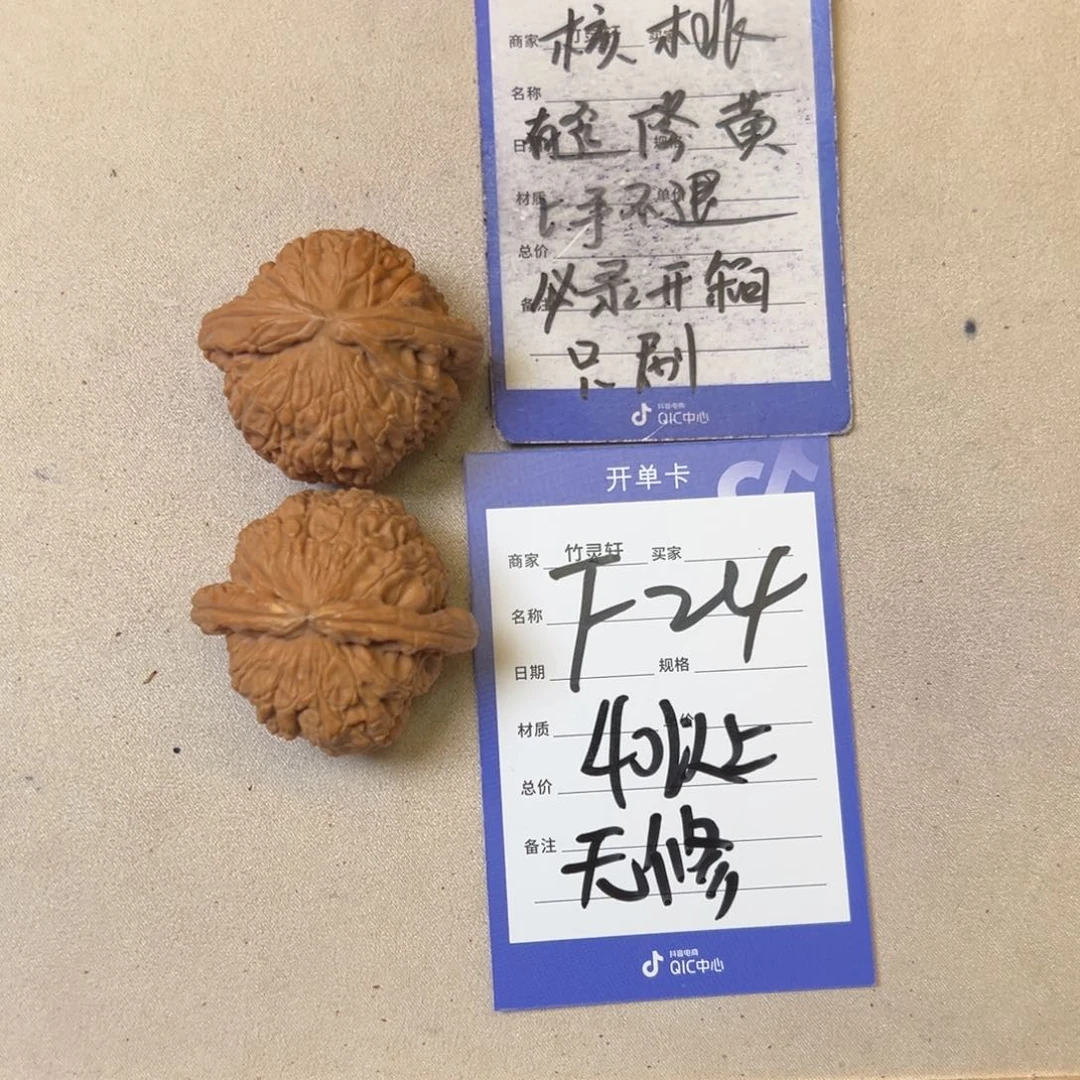 商家 竹灵轩 买家
核桃
名称
有定修黄
日期 规格
材质 单价
上手不退
总价
必录开箱
备注
只刷
抖音电商
QIC中心
开单卡
商家 竹灵轩 买家
F-24
名称
日期 规格
材质 价
40以上
总价
备注
无修
抖音电商
QIC中心